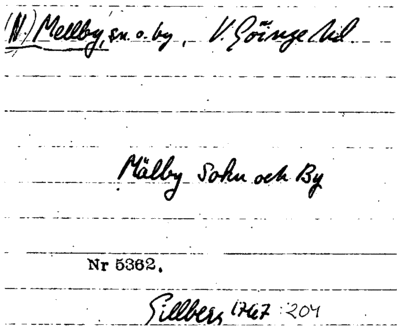 (N.) Mellby, sn. o. by, V. Göinge hd
Mälby Sokn och By
Nr 5362.
Gillberg 1767 : 204